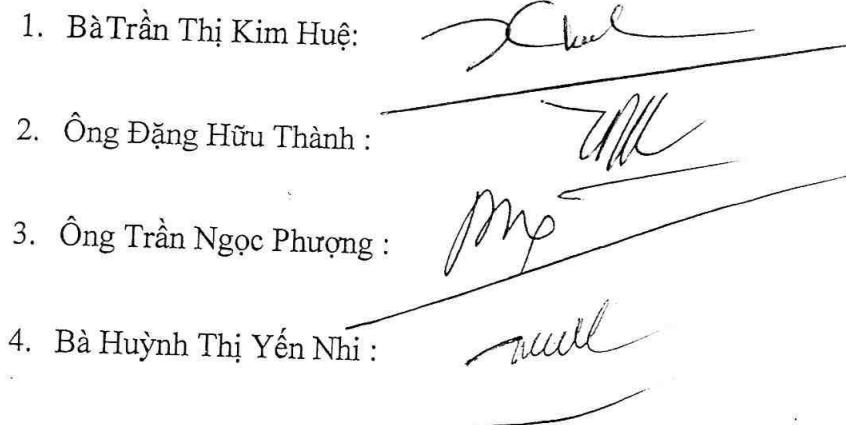 1. BàTrần Thị Kim Huệ:
2. Ông Đặng Hữu Thành :
3. Ông Trần Ngọc Phượng :
4. Bà Huỳnh Thị Yến Nhi :